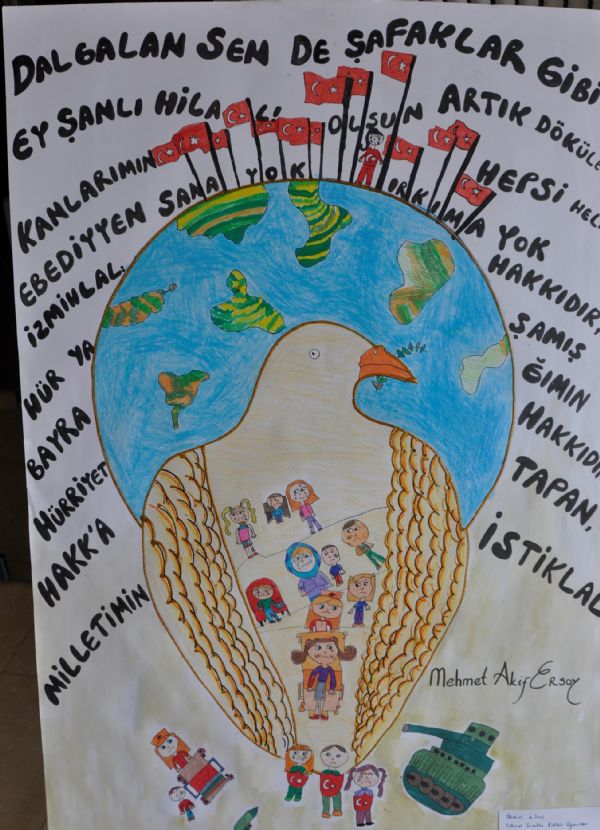 DALGALAN SEN DE ŞAFAKLAR GİBİ
EY ŞANLI HİLAL! OLSUN ARTIK DÖKÜLE
KANLARIMIN HEPSİ HEL
EBEDİYYEN SANA YOK IRKIMA YOK
İZMİHLAL; HAKKIDIR,
HÜR YA ŞAMIŞ
BAYRA ĞIMIN
HÜRRİYET HAKKIDI
HAKK'A TAPAN,
MİLLETİMİN İSTİKLAL
Mehmet Akif Ersoy